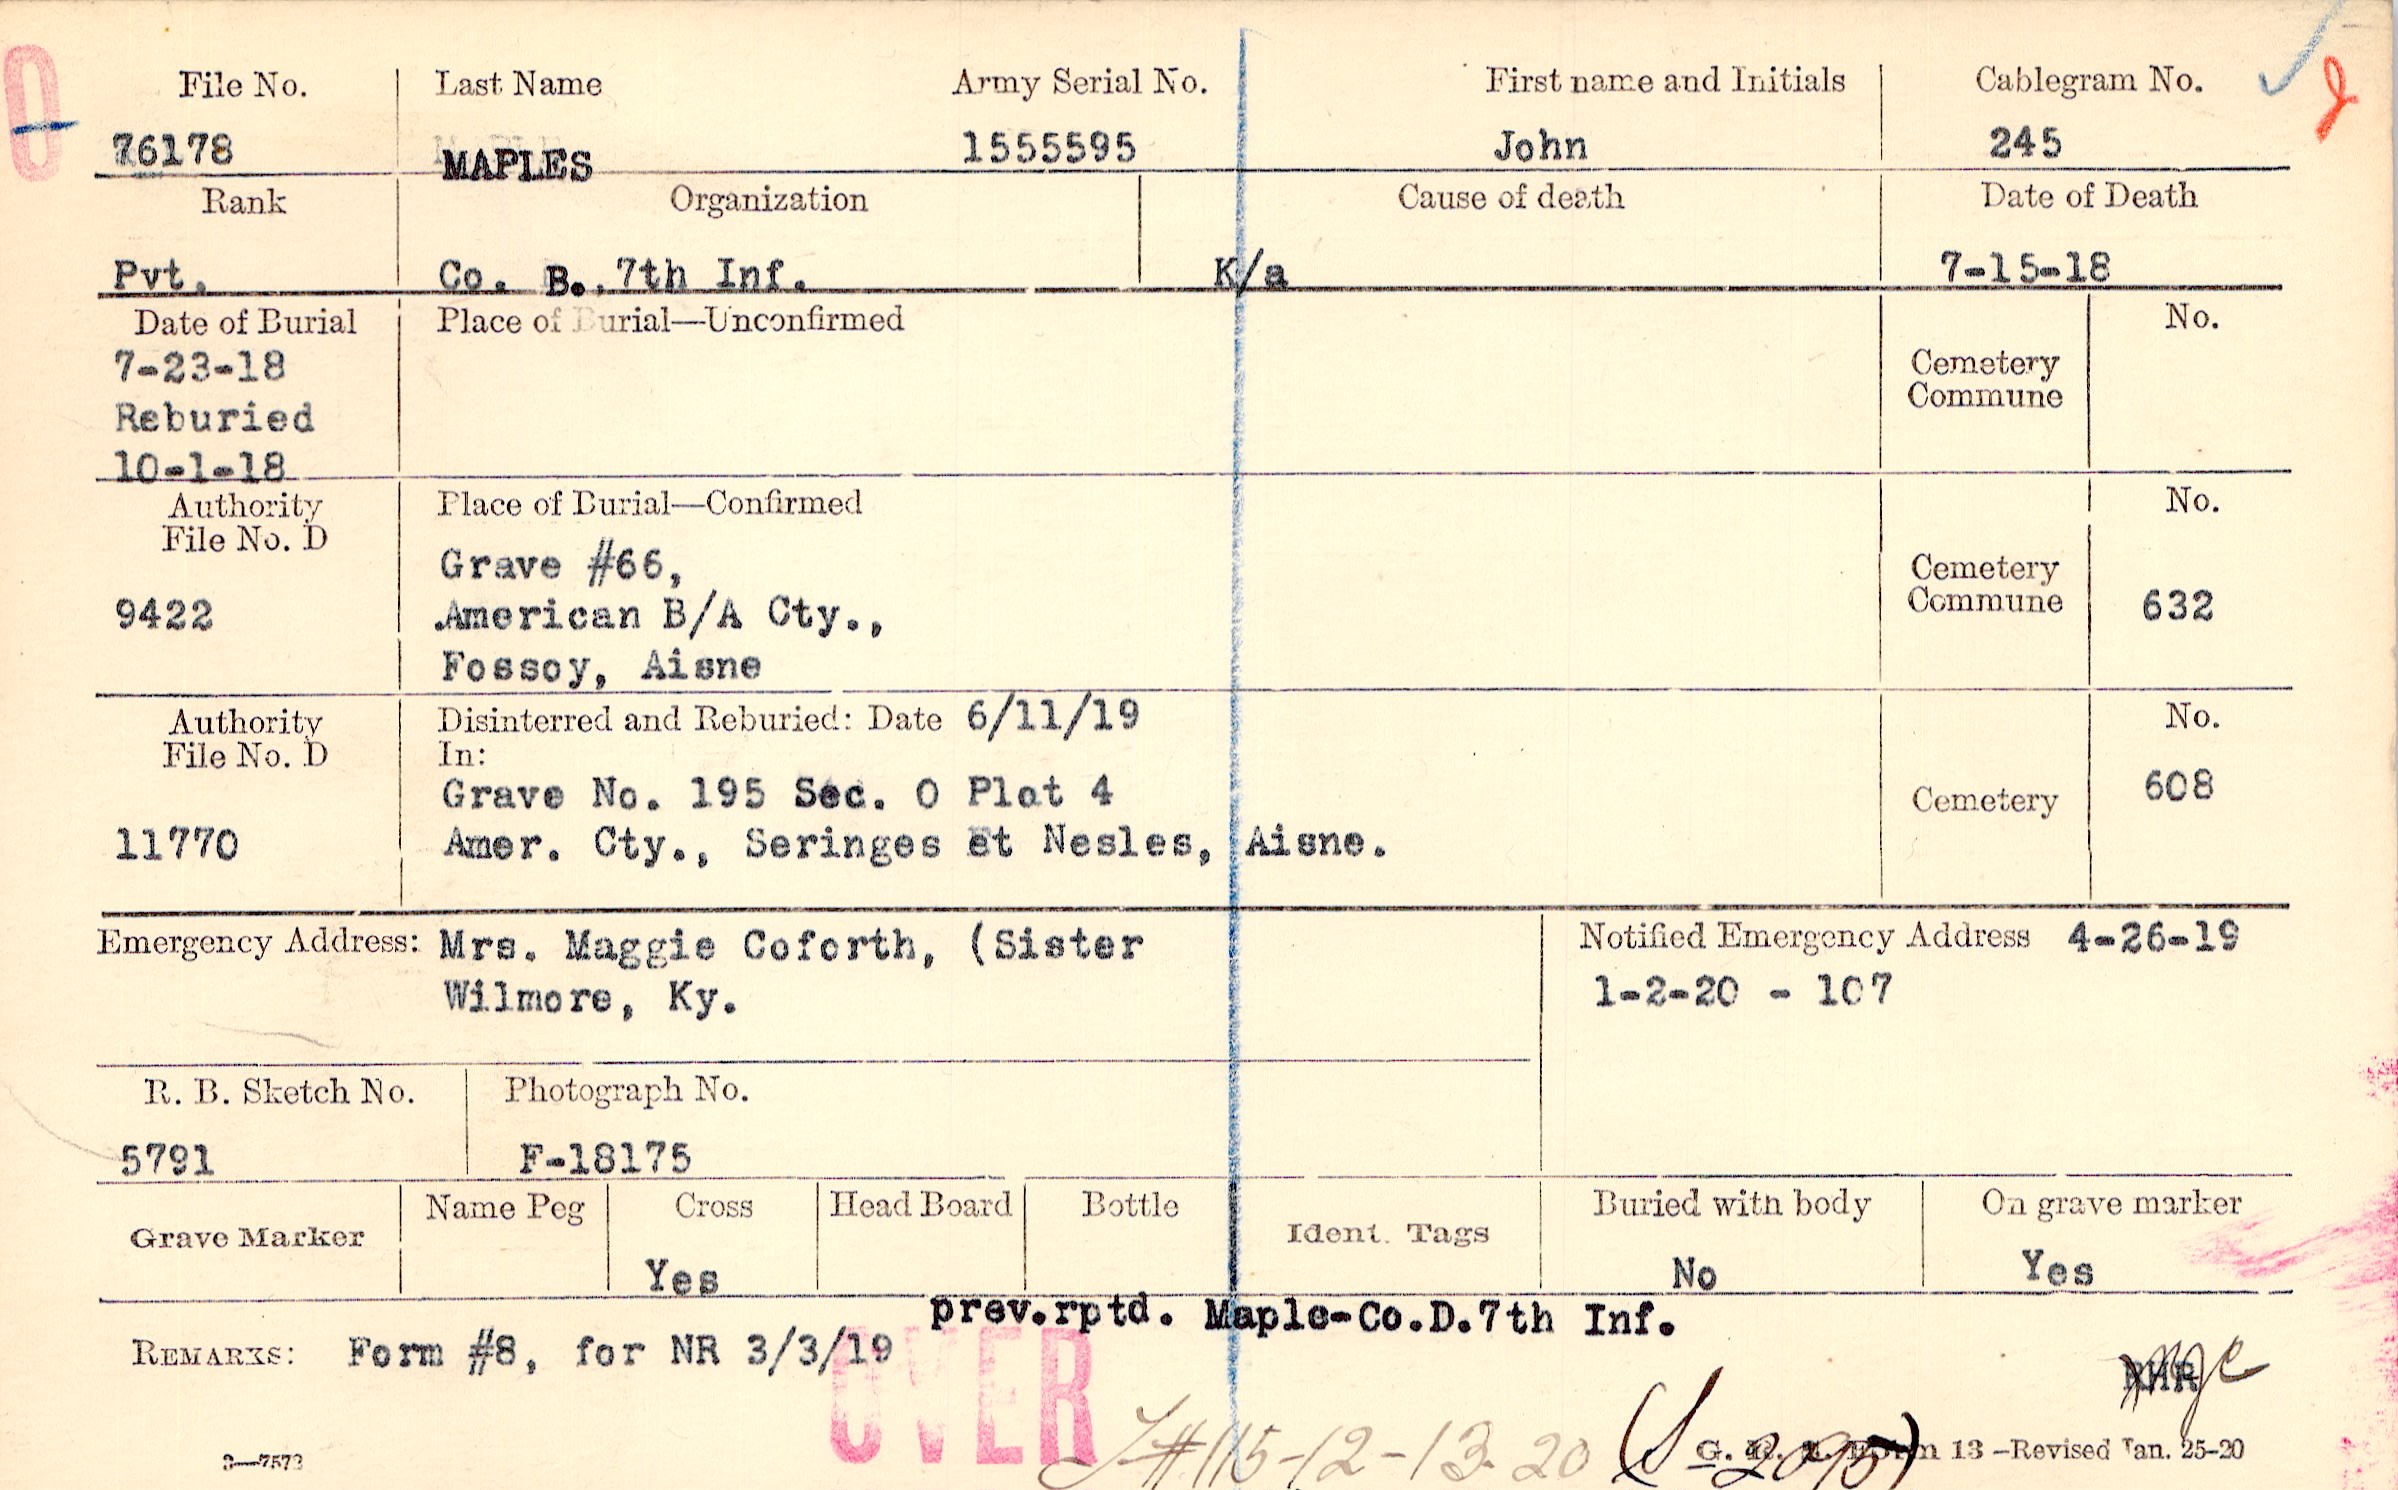 File No. Last Name Army Serial No. First name and Initials Cablegram No.
76178 MAPLES 1555595 John 245
Rank Organization Cause of death Date of Death
Pvt. Co. B. 7th Inf. K/a 7-15-18
Date of Burial Place of Burial—Unconfirmed No.
7-23-18
Reburied
10-1-18
Cemetery
Commune
Authority Place of Burial—Confirmed No.
File No. D
Grave #66,
9422 American B/A Cty.,
Fossoy, Aisne
Cemetery
Commune 632
Authority Disinterred and Reburied: Date 6/11/19 No.
File No. D In:
Grave No. 195 Sec. O Plot 4 Cemetery 608
11770 Amer. Cty., Seringes et Nesles, Aisne.
Emergency Address: Mrs. Maggie Coforth, (Sister Notified Emergency Address 4-26-19
Wilmore, Ky. 1-2-20 - 107
R. B. Sketch No. Photograph No.
5791 F-18175
Grave Marker Name Peg Cross Head Board Bottle Ident. Tags Buried with body On grave marker
Yes No Yes
prev.rptd. Maple-Co.D.7th Inf.
REMARKS: Form #8, for NR 3/3/19
OVER
3—7573 G. R. S. Form 13 —Revised Jan. 25-20